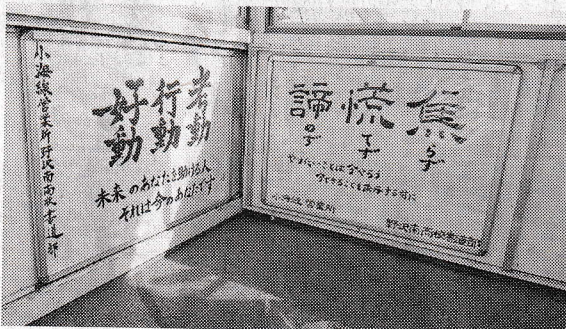 考動
行動
好動
未来のあなたを助ける人
それは今のあなたです
小海線営業所 野沢南高校書道部
焦らず
慌てず
諦めず
小海線営業所
野沢南高校書道部